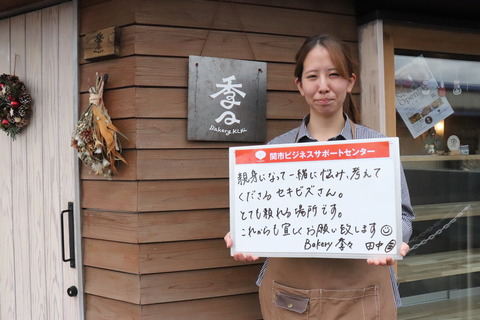 季々
Bakery KiKi
季々
Open
関市ビジネスサポートセンター
親身になって一緒に悩み、考えて
くださるセキビズさん。
とても頼れる場所です。
これからも宜しくお願い致します☺
Bakery 季々 田中